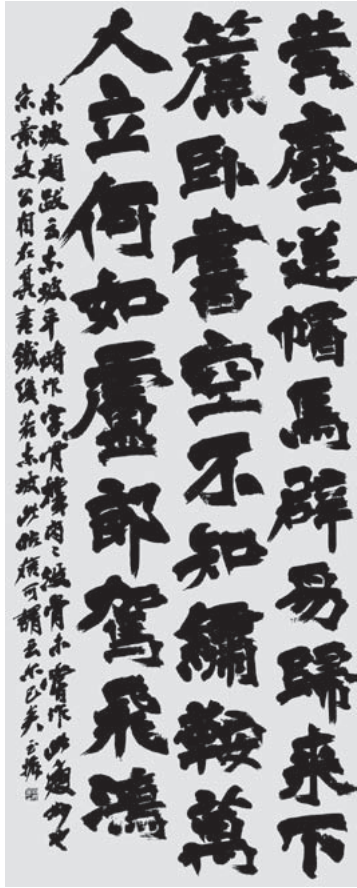 黃塵逆帽馬辟易歸來下
簾臥書空不知繡鞍萬
人立何如盧郎駕飛鴻
東坡題跋云東坡平時作字骨撐肉々沒骨未嘗作此瘦妙也
宋景文公自名其書鐵線若東坡此帖信可謂云尔已矣